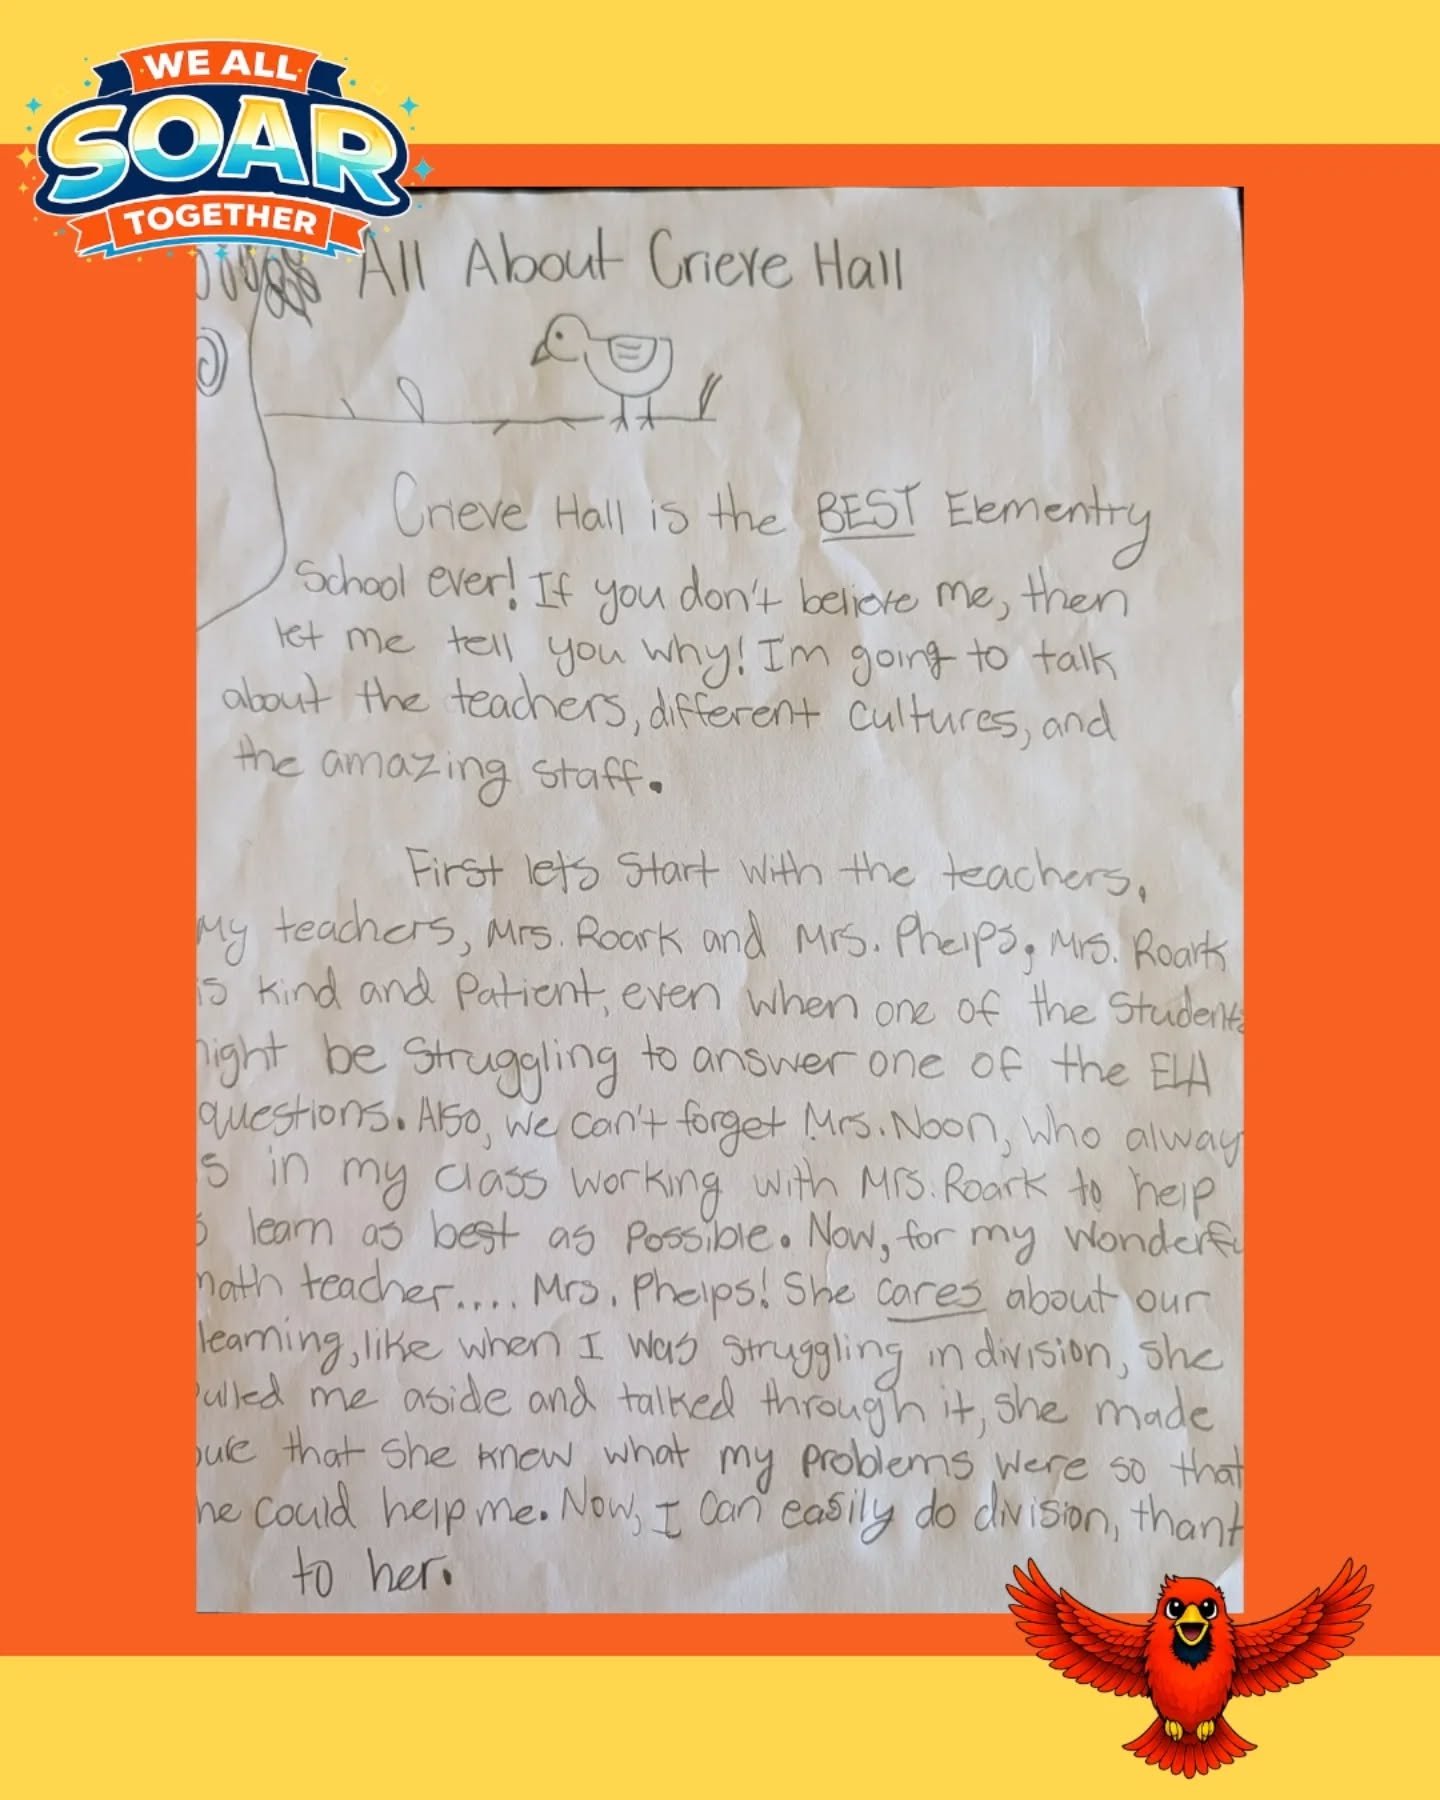 WE ALL
SOAR
TOGETHER
All About Crieve Hall
Crieve Hall is the BEST Elementry
School ever! If you don't believe me, then
let me tell you why! I'm going to talk
about the teachers, different cultures, and
the amazing staff.
First lets start with the teachers.
My teachers, Mrs. Roark and Mrs. Phelps, Mrs. Roark
is kind and patient, even when one of the students
might be struggling to answer one of the ELA
questions. Also, we can't forget Mrs. Noon, who alway
s in my class working with Mrs. Roark to help
s learn as best as possible. Now, for my wonderfu
math teacher.... Mrs. Phelps! She cares about our
learning, like when I was struggling in division, she
pulled me aside and talked through it, she made
sure that she knew what my problems were so that
he could help me. Now, I can easily do division, thank
to her.